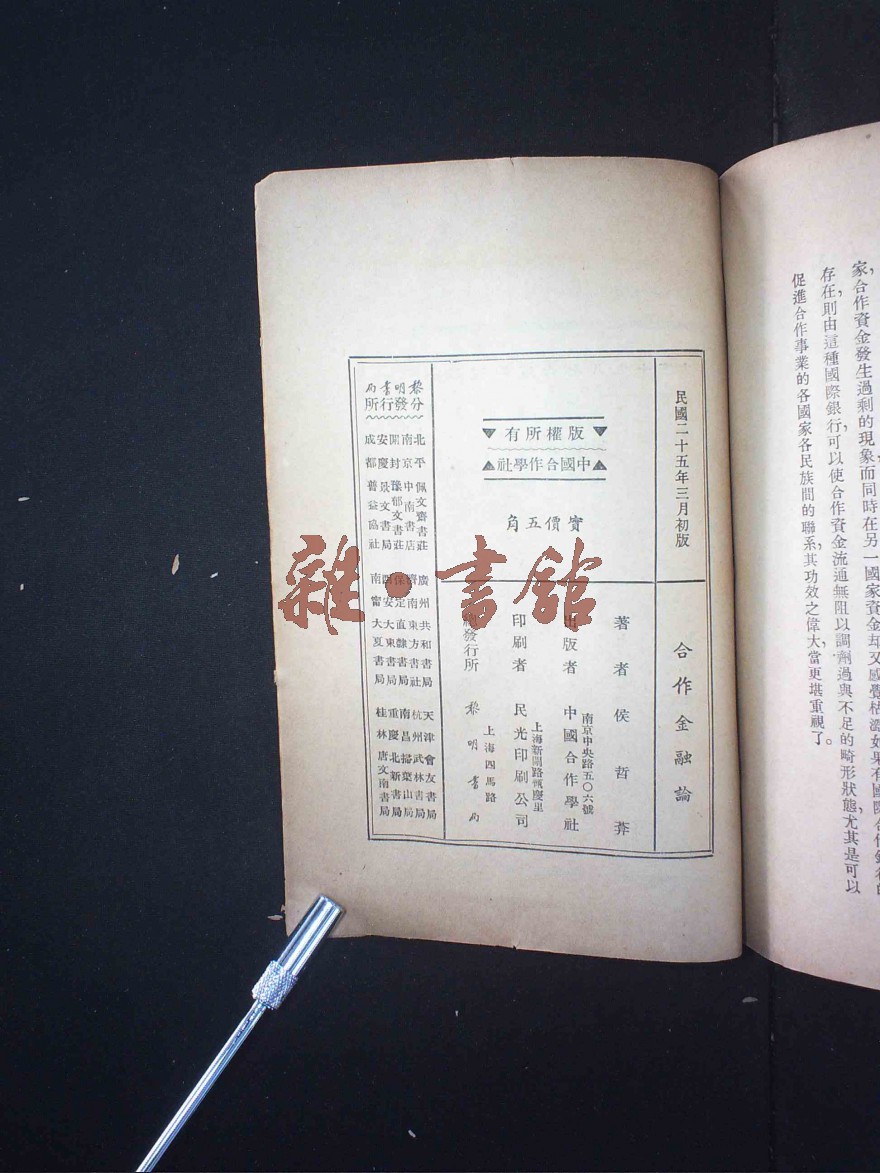 家合作資金發生過剩的現象而同時在另一國家資金却又感覺枯澀如果有國際合作銀行的
存在，則由這種國際銀行，可以使合作資金流通無阻以調劑過與不足的畸形狀態，尤其是可以
促進合作事業的各國家各民族間的聯系，其功效之偉大，當更堪重視了。
民國二十五年三月初版
合作金融論
版權所有
中國合作學社
實價五角
著者 侯哲葊
出版者 中國合作學社
南京中央路五〇六號
印刷者 民光印刷公司
上海新閘路甄慶里
總發行所 黎明書局
上海四馬路
黎明書局
分發行所
北平佩文齋書莊
南京中南書店
開封豫郁文書莊
安慶景文書局
成都普益協社
廣州共和書局
濟南東方書社
保定直隸書局
西安大東書局
南甯大夏書局
天津會友書局
杭州武林書局
南昌掃葉山局
重慶北新書局
桂林唐文南書局
雜·書館